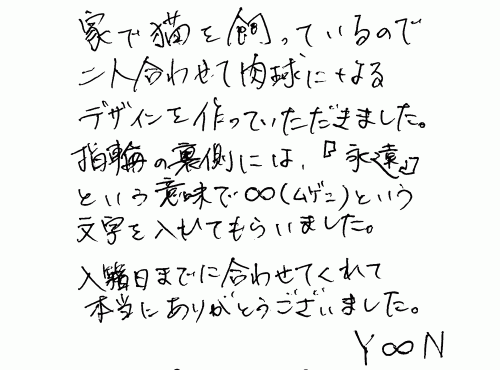 家で猫を飼っているので
二人合わせて肉球になる
デザインを作っていただきました。
指輪の裏側には、『永遠』
という意味で∞(ムゲン)という
文字を入れてもらいました。
入籍日までに合わせてくれて
本当にありがとうございました。
Y∞N